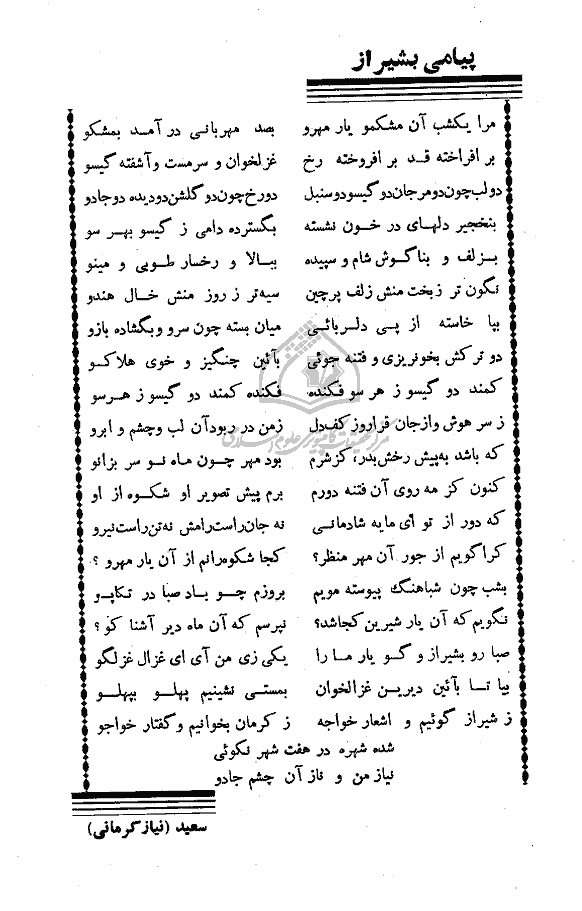 پیامی بشیراز
مرا یکشب آن مشکمو یار مهرو بصد مهربانی درآمد بمشکو
بر افراخته قد بر افروخته رخ غزلخوان و سرمست و آشفته گیسو
دولب چون دو مرجان دو گیسو دو سنبل دورخ چون دو گلشن دودیده دو جادو
بنخجیر دلهای در خون نشسته بگسترده دامی ز گیسو بهر سو
بزلف و بناگوش شام و سپیده ببالا و رخسار طوبی و مینو
نگون تر زبخت منش زلف پرچین سیه تر ز روز منش خال هندو
بپا خاسته از پی دلربائی میان بسته چون سرو و بگشاده بازو
دو ترکش بخونریزی و فتنه جوئی بآئین چنگیز و خوی هلاکو
کمند دو گیسو ز هر سو فکنده فکنده کمند دو گیسو ز هرسو
ز سر هوش و از جان قرار و ز کف دل زمن در ربود آن لب و چشم و ابرو
که باشد به پیش رخش بدر، کز شرم بود مهر چون ماه نو سر بزانو
کنون کز مه روی آن فتنه دورم برم پیش تصویر او شکوه از او
که دور از تو ای مایه شادمانی نه جان راست رامش نه تن راست نیرو
کرا گویم از جور آن مهر منظر؟ کجا شکوه رانم از آن یار مهرو ؟
بشب چون شباهنگ پیوسته مویم بروزم چو باد صبا در تکاپو
نگویم که آن یار شیرین کجا شد؟ نپرسم که آن ماه دیر آشنا کو ؟
صبا رو بشیراز و گو یار ما را یکی زی من آی ای غزال غزلگو
بیا تا بآئین دیرین غزلخوان بمستی نشینیم پهلو بپهلو
ز شیراز گوئیم و اشعار خواجه ز کرمان بخوانیم و گفتار خواجو
شده شهره در هفت شهر نکوئی
نیاز من و ناز آن چشم جادو
سعید (نیاز کرمانی)